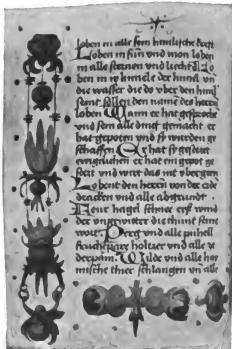 loben in alle sein himlische kreft
Loben in sun und mon loben
in alle sternen und liecht Lo
ben in ir himele der himel un
die wasser die do ober den himel
seint sollen den namē des herrn
loben Wann er hat gesproche
und sein alle ding gemacht er
hat gepoten und sy wurden ge
schaffen Er hat sy gesetzet
ewigclichen er hat ein gepot ge
setzt und wirt das nit ubergen
Lobent den herren von der erde
tracken und alle abgrundt
Feur hagel schnee eyß wind
der ungewitter die thunt sein
wort Perg und alle pühell
fruchtpare holtzer und alle ze
derpaim Wilde und alle hai
mische thier schlangen un alle